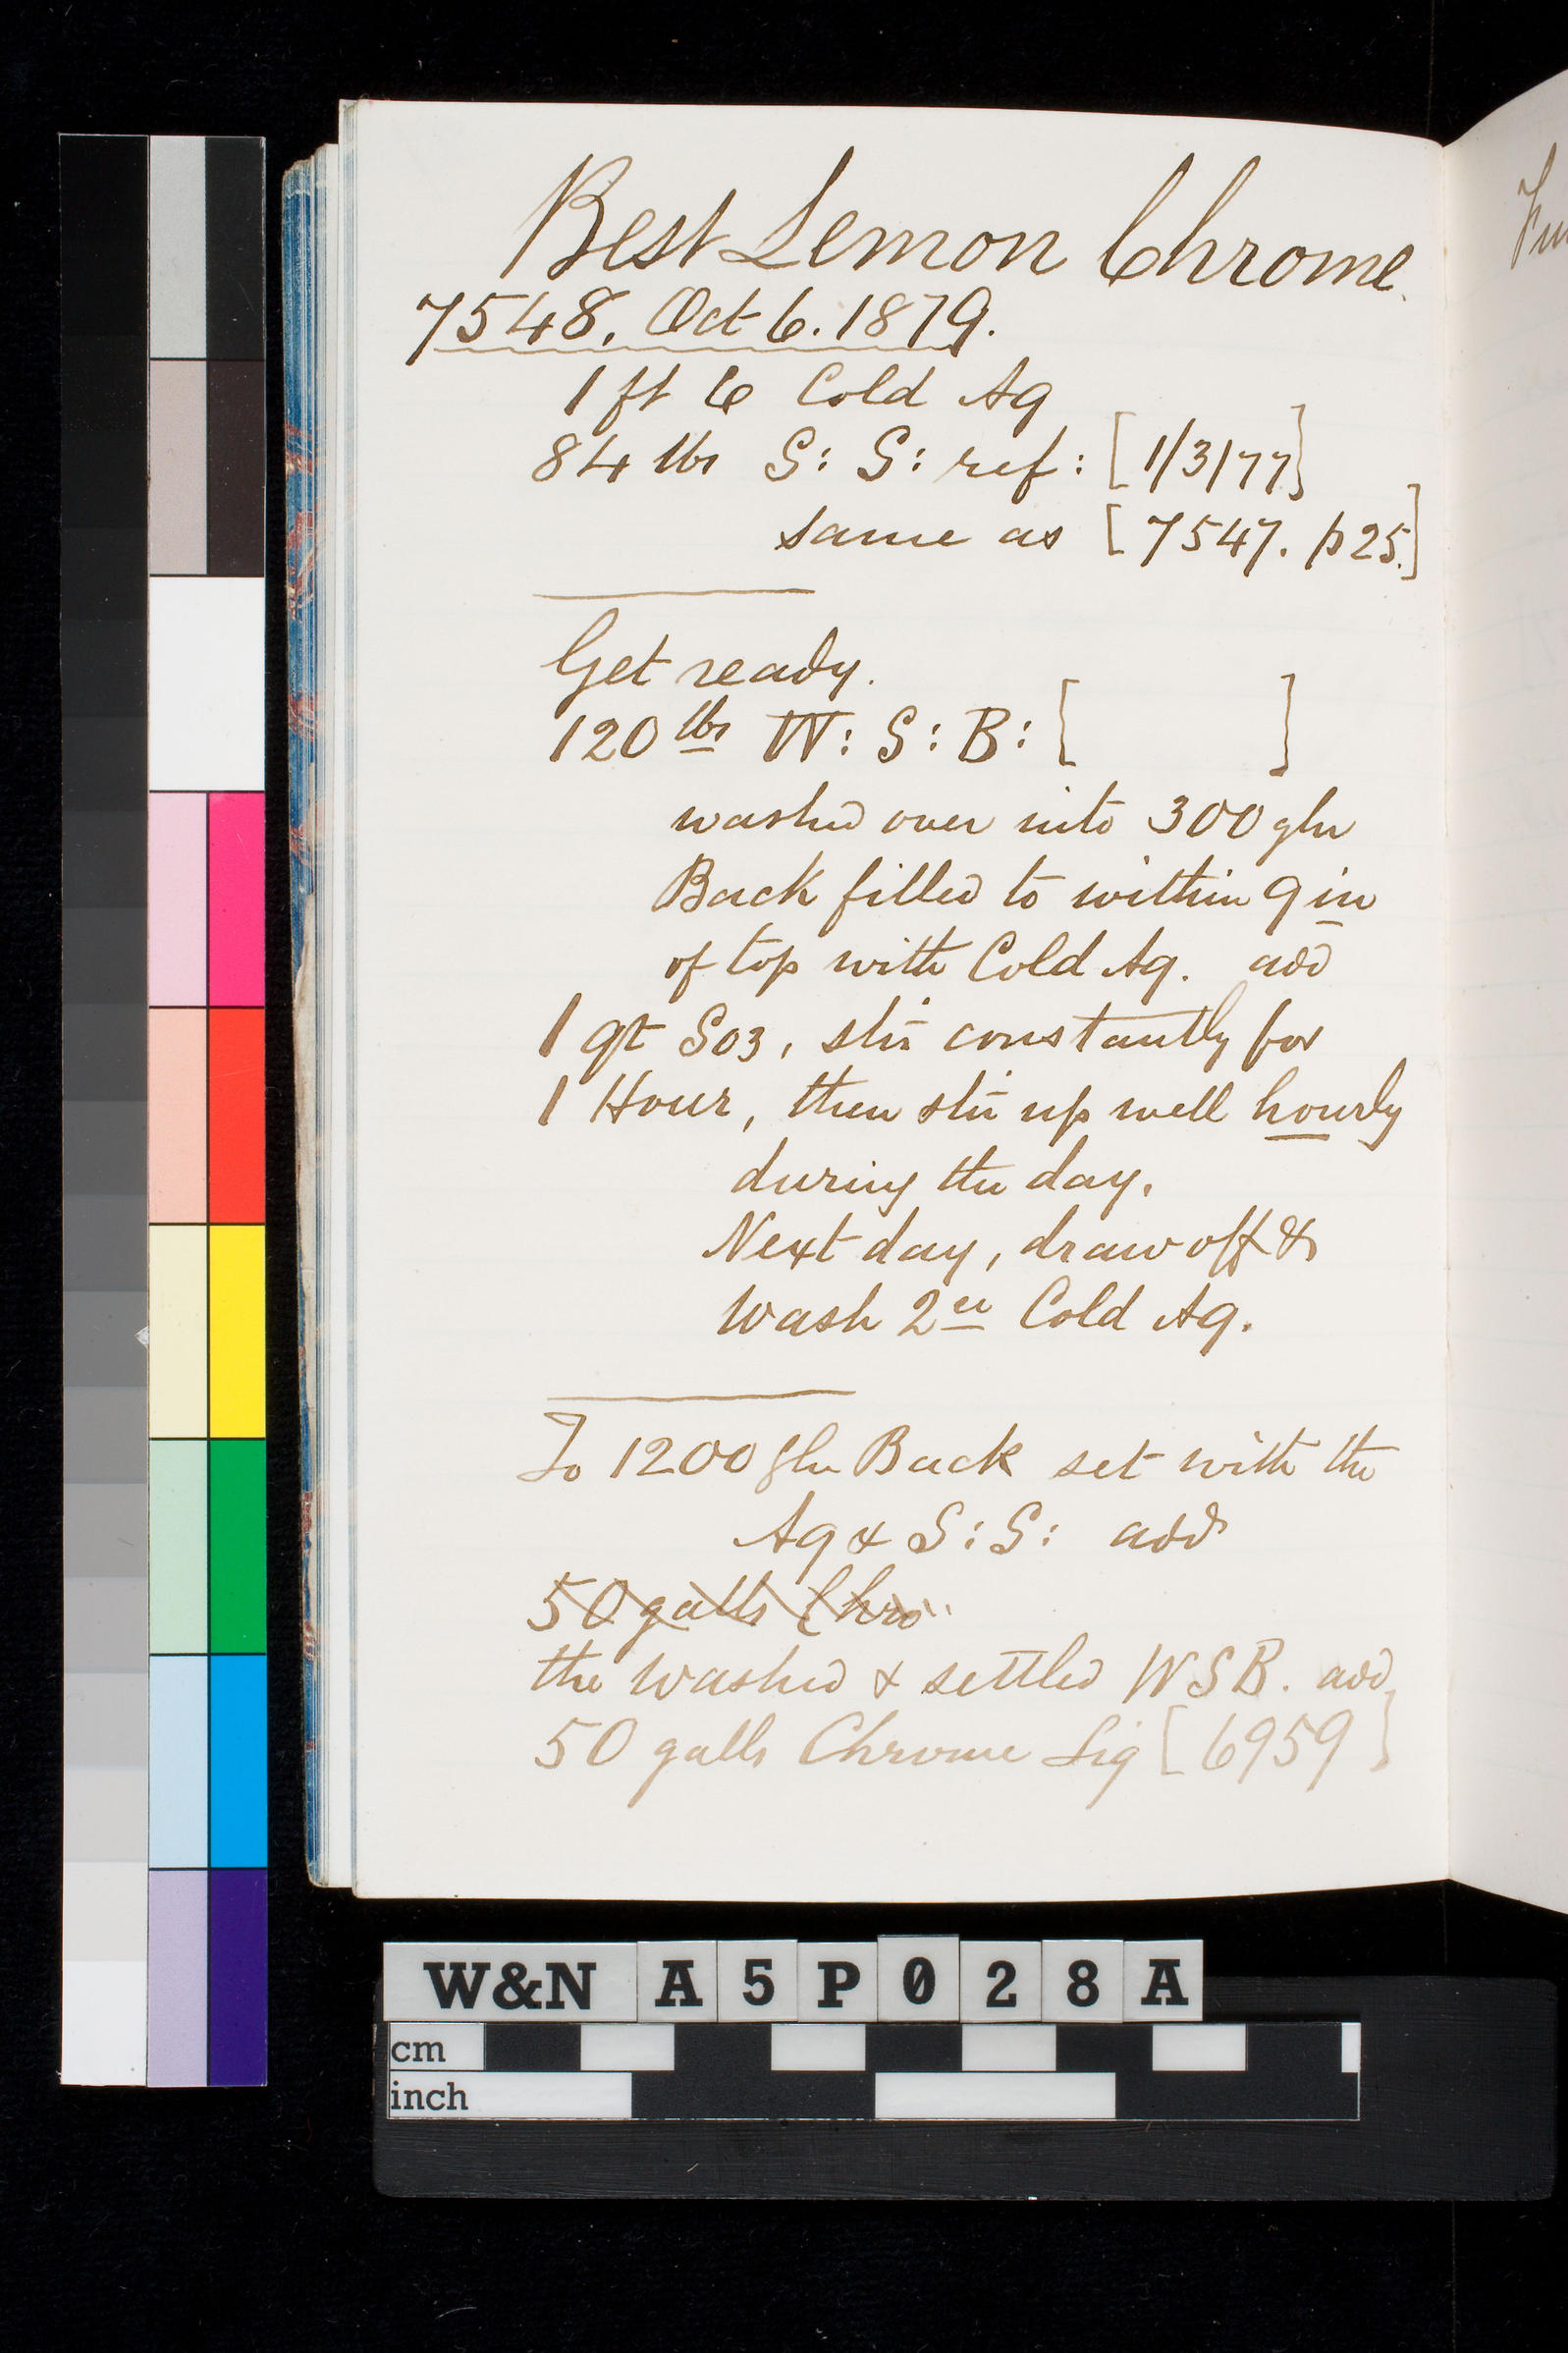 Best Lemon Chrome.
7548. Oct 6. 1879.
1 ft 6 Cold Aq
84 lbs S: S: ref: [1/3/77]
same as [7547. p 25.]
Get ready.
120 lbs W: S: B: [ ]
washed over into 300 gln
Back filled to within 9 in
of top with Cold Aq. add
1 qt SO3, stir constantly for
1 Hour, then stir up well hourly
during the day.
Next day, draw off &
Wash 2ce Cold Aq.
To 1200 gln Back set with the
Aq & S: S: add
50 galls Chro
the washed & settled WSB. add
50 galls Chrome Liq [6959]
W&N A 5 P 0 2 8 A
cm
inch